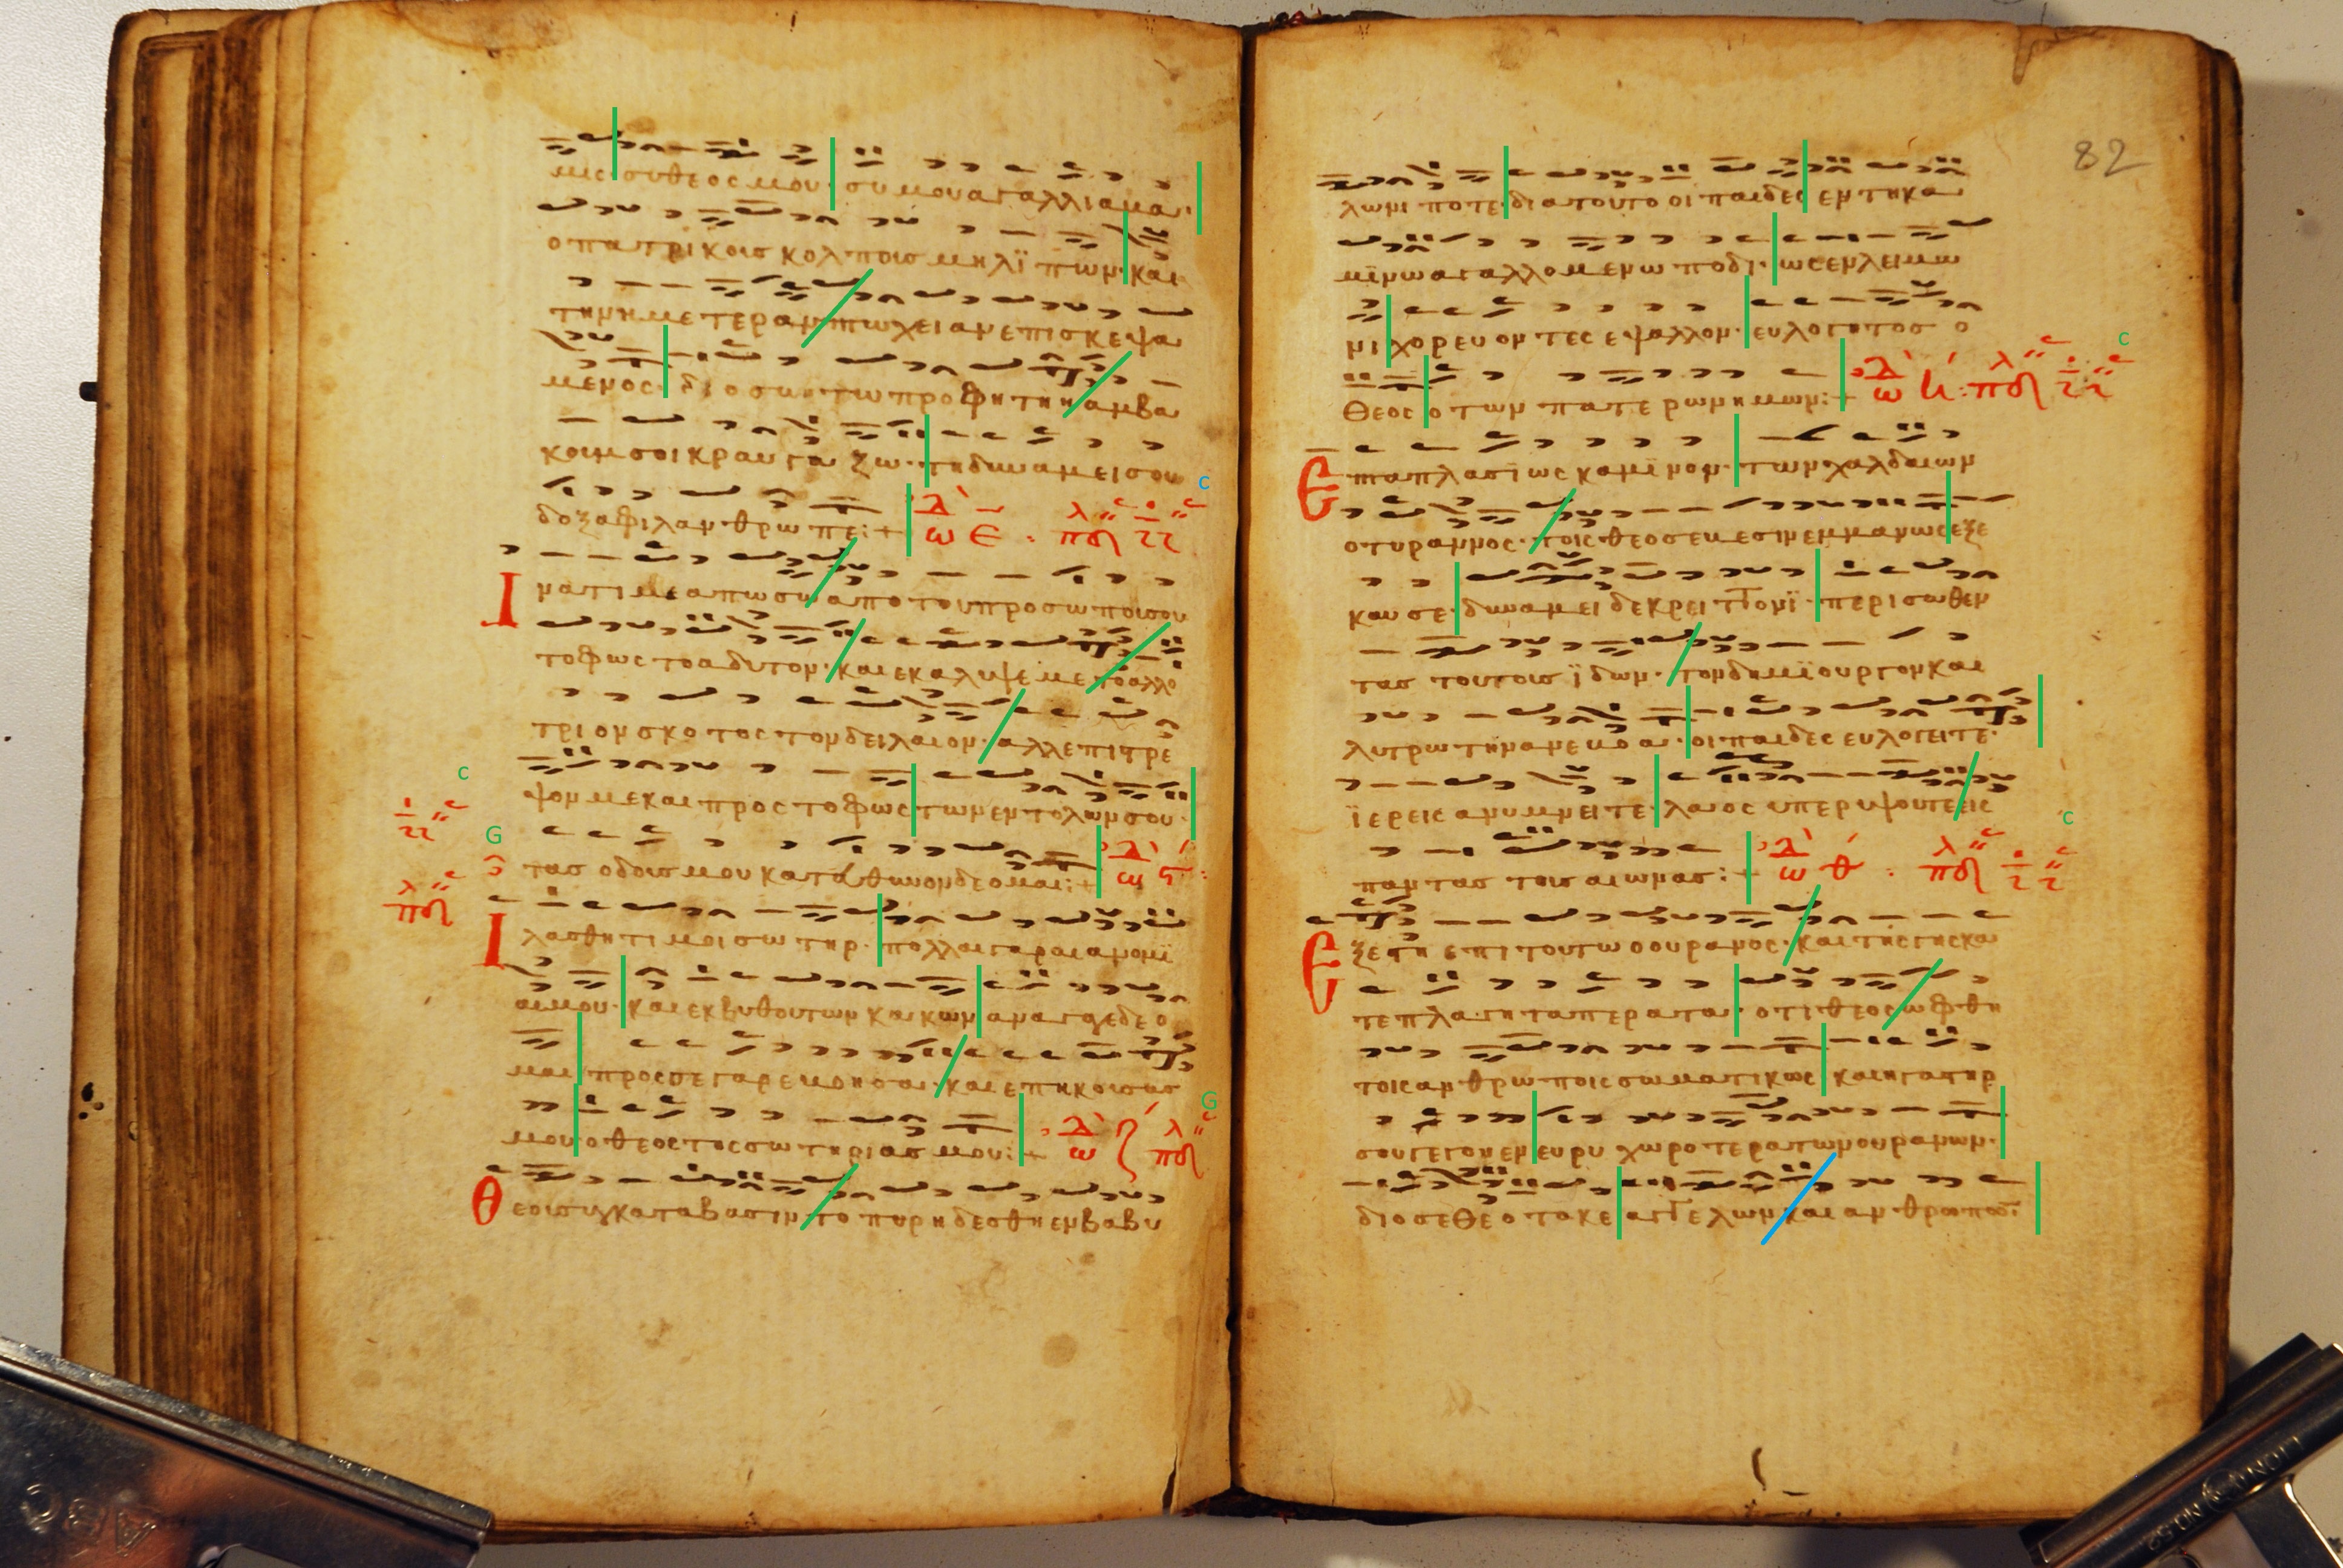 μις συ θεος μου· συ μου αγαλλιαμα·
ο πατρικους κολπους μη λϊπων· και
την ημετεραν πτωχειαν επισκεψα
μενος· διο συν τω προφητη αμβα
κουμ σοι κραυγαζω· τη δυναμει σου
δοξα φιλανθρωπε:+
Ινα τι με απωσω απο του προσωπου σου
το φως το αδυτον· και εκαλυψε με το αλλο
τριον σκοτος τον δειλαιον· αλλ επιτρε
ψον με και προς το φως των εντολων σου·
τας οδους μου κατευθυνον δεομαι:+
Ιλασθητι μοι σωτηρ· πολλαι γαρ αι ανομϊ
αι μου· και εκ βυθου των κακων αναγαγε δεο
μαι προς σε γαρ εβοησα· και επηκουσας
μου ο θεος της σωτηριας μου:+
Θεου συγκαταβασιν το πυρ ηδεσθη εν βαβυ
82
λωνι ποτε· δια τουτο οι παιδες εν τη κα
μϊνω αγαλλομενω ποδι· ως εν λειμω
νι χορευοντες εψαλλον· ευλογητος ο
Θεος ο των πατερων ημων:+
Επταπλασϊως καμϊνον· των χαλδαιων
ο τυραννος· τοις θεοσεβεσιν εμμανως εξε
καυσε· δυναμει δε κρειττονϊ· περισωθεν
τας τουτους ϊδων· τον δημϊουργον και
λυτρωτην ανεβοα· οι παιδες ευλογειτε·
ϊερεις ανυμνειτε· λαος υπερυψουτε εις
παντας τους αιωνας:+
Εξεστη επι τουτω ο ουρανος· και της γης κα
τεπλαγη τα περατα· οτι θεος ωφθη
τοις ανθρωποις σωματικως και η γαστηρ
σου γεγονεν ευρυχωροτερα των ουρανων·
διο σε Θεοτοκε αγγελων και ανθρωπων